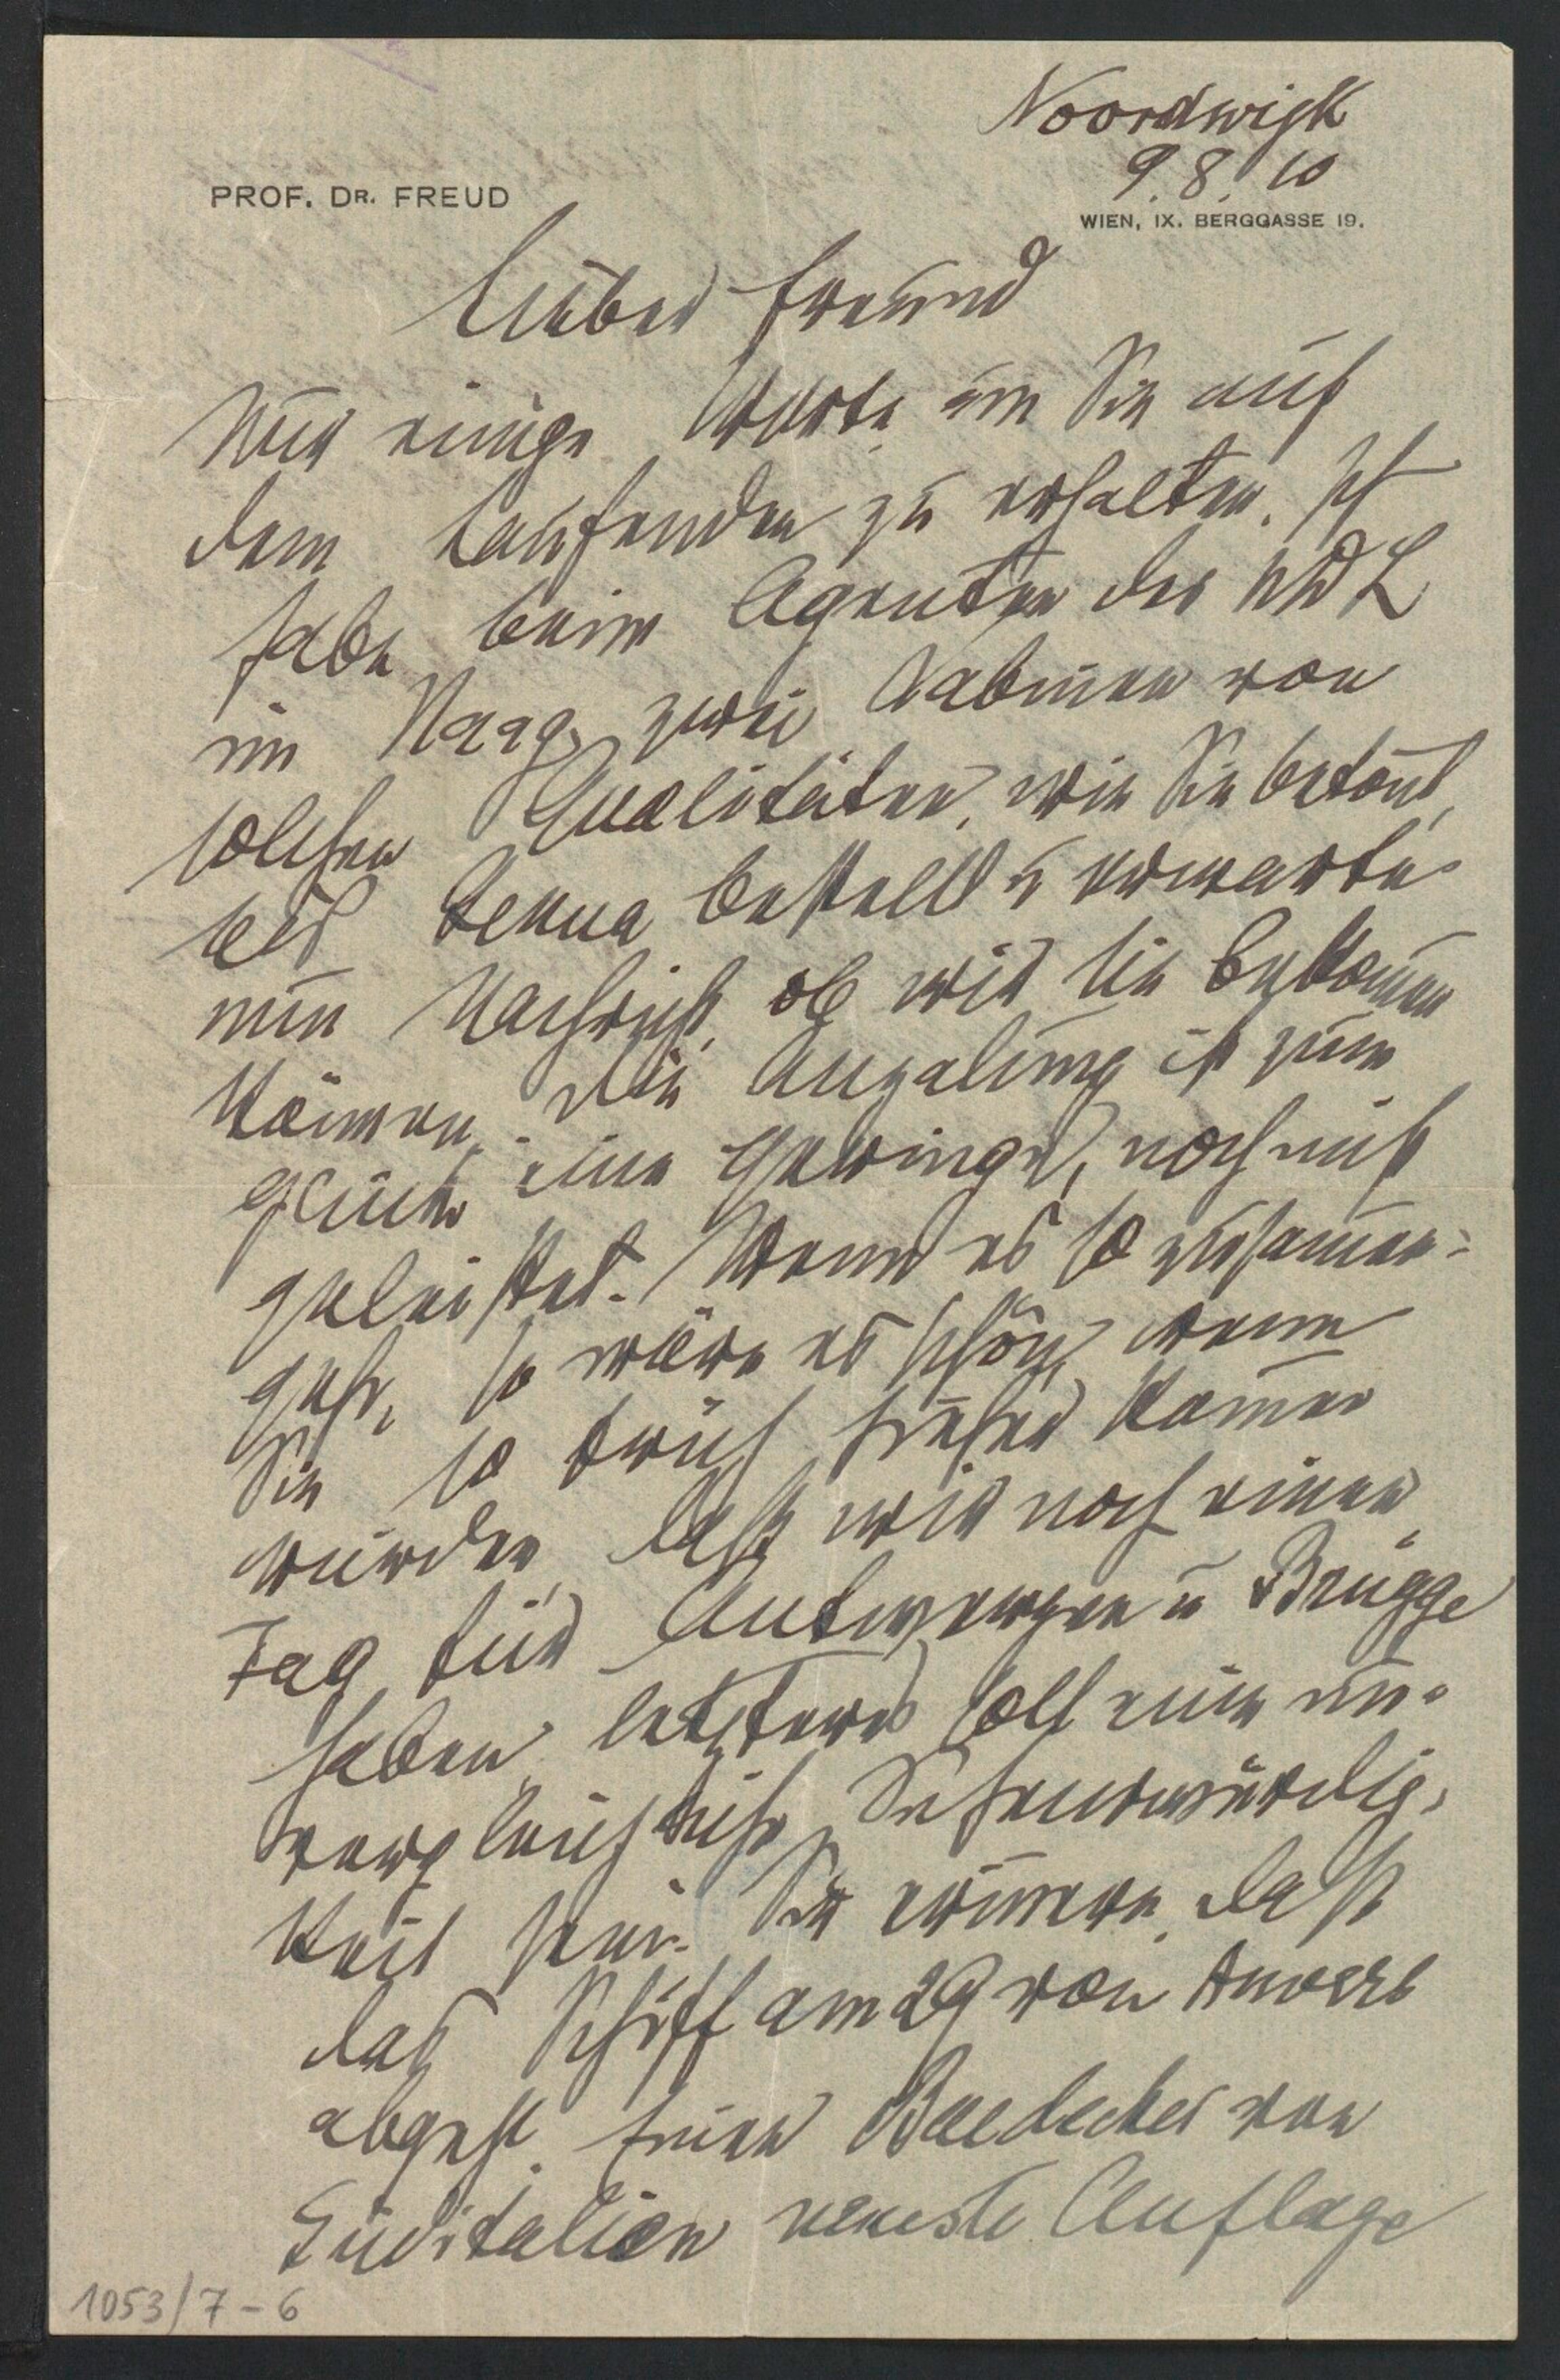 Noordwijk
9.8.10
PROF. DR. FREUD
WIEN, IX. BERGGASSE 19.
Lieber Freund
Nur einige Worte um Sie auf
dem Laufenden zu erhalten. Ich
habe beim Agenten des NDL
im Haag zwei Kabinen von
solchen Qualitäten, wie Sie betont,
bis Genua bestellt u erwarte
nun Nachricht, ob wir sie bekom̅en
kön̅en. Die Anzalung ist zum
Glück eine geringe, noch nicht
geleistet. Wenn es so zusam̅en-
geht, so wäre es schön, wenn
Sie so früh hieher kom̅en
würden, daß wir noch einen
Tag für Antwerpen u Brügge
haben, letzteres soll eine un-
vergleichliche Sehenswürdig-
keit sein. Sie erin̅ern, daß
das Schiff am 29 von Anvers
abgeht. Einen Baedecker von
Süditalien neueste Auflage
1053/7-6